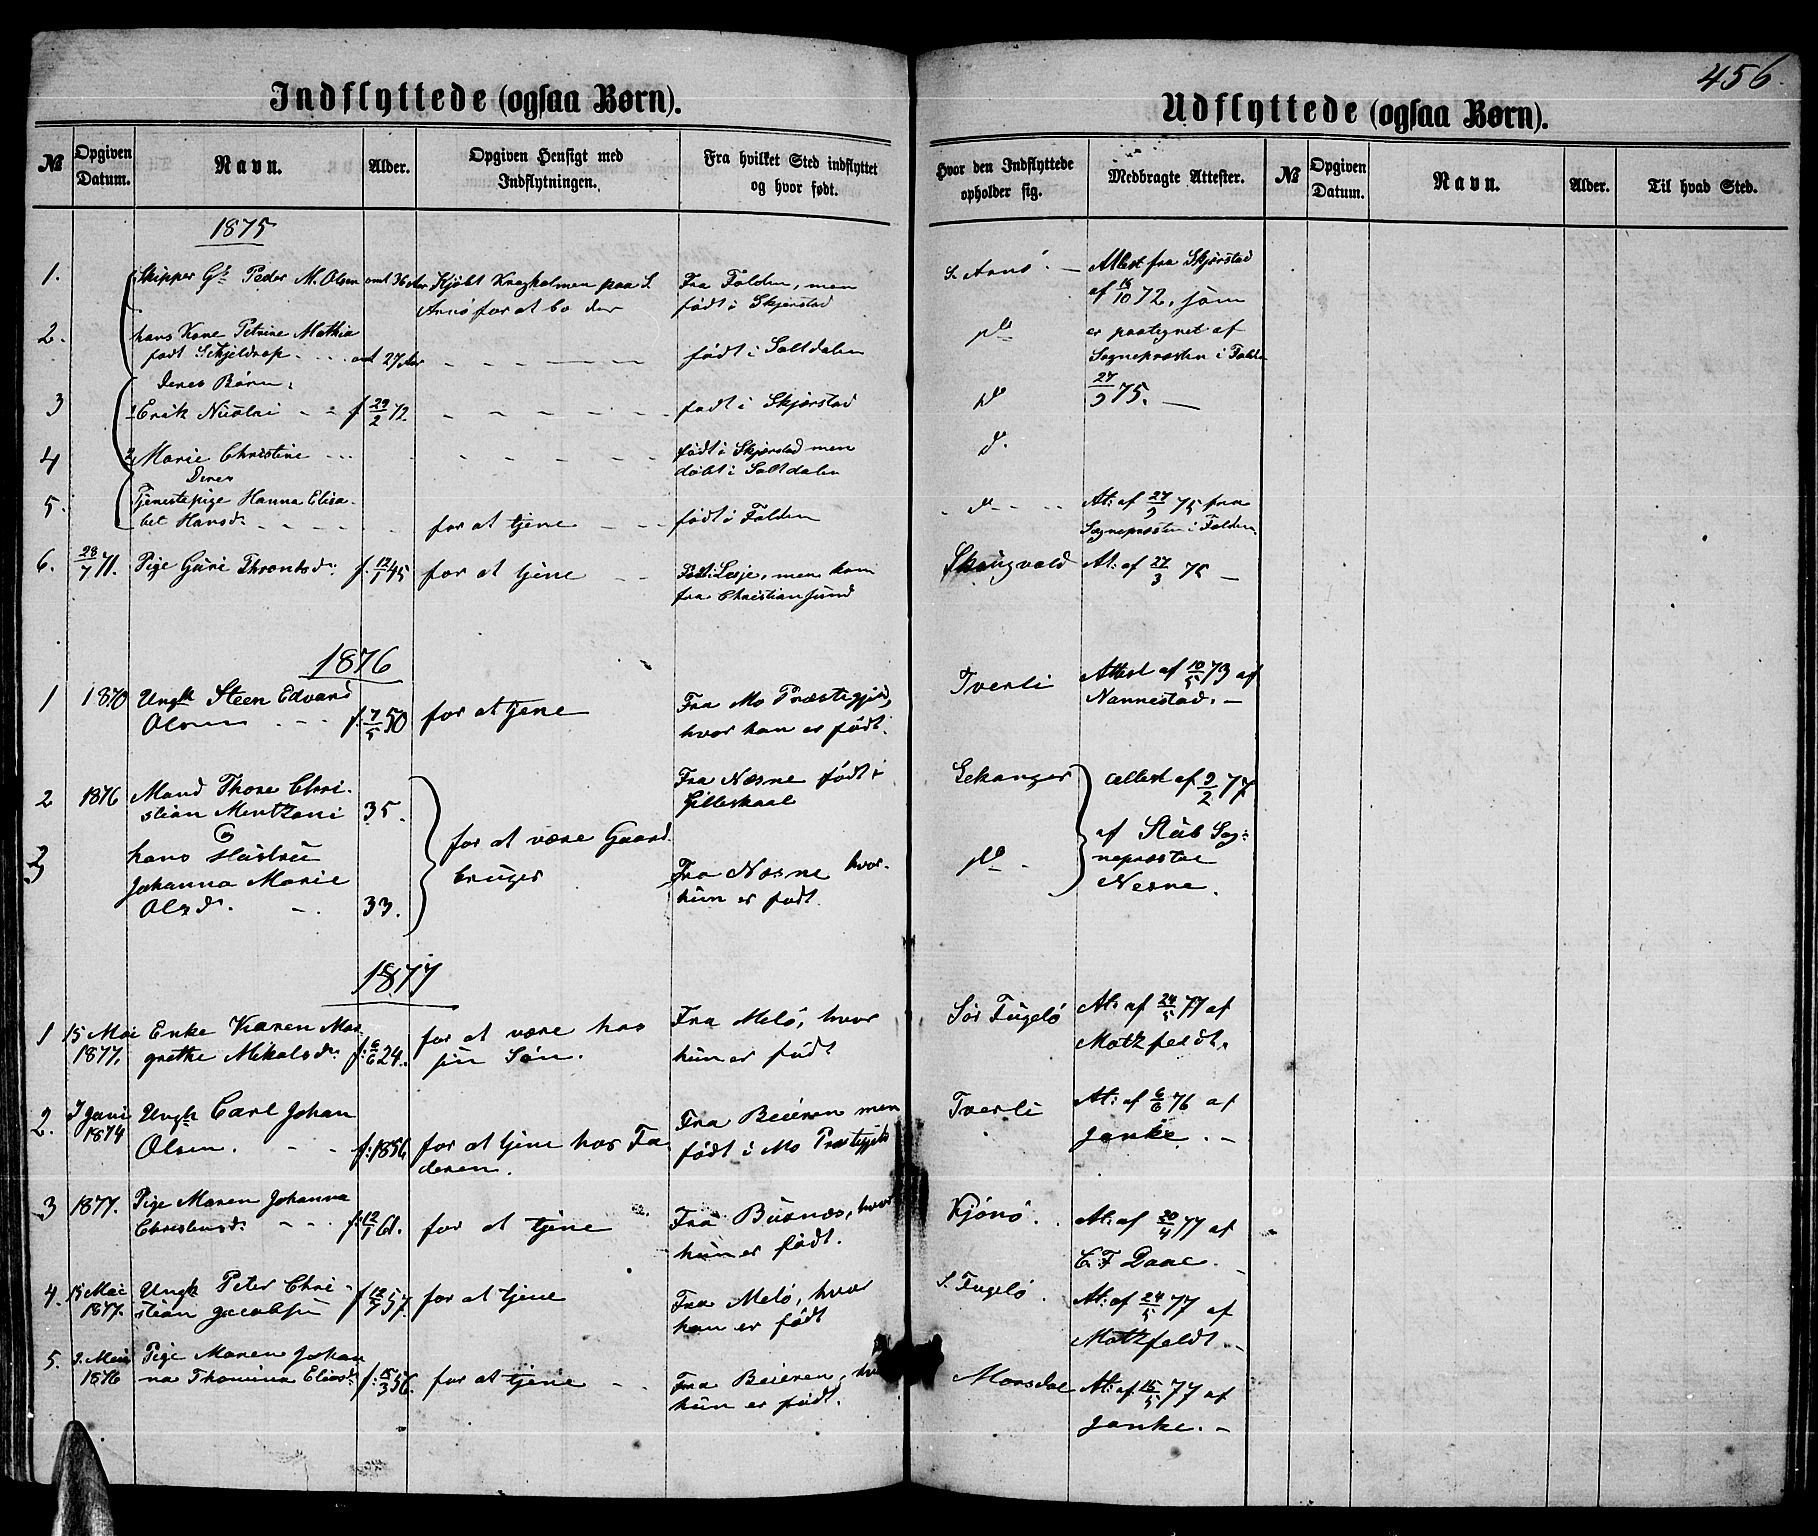 Indflyttede (ogsaa Børn).
№
Opgiven Datum.
Navn.
Alder.
Opgiven Hensigt med Indflytningen.
Fra hvilket Sted indflyttet og hvor født.
456.
Udflyttede (ogsaa Børn).
Hvor den Indflyttede opholder sig.
Medbragte Attester.
№
Opgiven Datum.
Navn.
Alder.
Til hvad Sted.
1875
1. Skipper Peder M. Olsen omt 36 Aar Kjøbt Kragholmen paa S. Fra Folden, men S. Arnø. — Attest fra Skjerstad
Arnø for at bo der født i Skjerstad af 15/10 72, som
2. hans Kone Petrine Mathia er paategnet af
født Skjeldrop omt 27 Aar født i Saltdalen do Sognepræsten i Folden
Deres Børn: 27/9 75. —
3 1 Erik Nicolai f. 29/2 72 født i Skjerstad do
4 2 Marie Christine født i Skjerstad men d.
Deres døbt i Saltdalen
5. Tjenestepige Hanna Elisa- At: af 27/9 75 fra
bet Hansd. for at tjene født i Folden d Sognepræsten i Folden
6. 28/7 71. Pige Guri Throndsdr. f. 12/1 45 for at tjene Født i Lesje, men kom Skaugvold At: af 27/3 75 —
fra Christiansund
1876
1 1870 Ungk. Steen Edvard Fra Mo Præstegjeld, Tverli Attest af 10/5 73 af
Olsen f. 7/5 50 for at tjene hvor han er født. Nannestad. —
2 1876 Mand Thore Chri- Fra Næsne født i Attest af 9/2 77
stian Mentzoni 35. Gilleskaal
3 og for at være Gaard- af Stub Sog-
hans Hustru bruger Fra Næsne hvor do — nepræst
Johanna Marie hun er født. Nesne.
Olsdr. 33.
1877
1 15 Mai Enke Karen Mar- for at være hos Fra Melø, hvor Sør Fugelø At: af 24/5 77 af
1877. grethe Mikalsdr. f. 6/6 24. sin Søn. hun er født Motzfeldt.
2. Juni Ungk. Carl Johan Fra Beieren men Tverli At: af 6/6 76 af
1874 Olsen. f: 1856 for at tjene hos Fa- født i Mo Præstegjeld Janke. —
deren.
3 1877. Pige Maren Johanna f: 12/1 61. for at tjene Fra Buxnes, hvor Kjønø. At: af 20/4 77 af
Christensd. hun er født. C. F Daae. —
4. 15 Mai Ungk Peter Chri- Fra Melø, hvor S. Fugelø. At: af 24/5 77 af
1877. stian Jacobsen f 12/7 57. for at tjene han er født Motzfeldt. —
5. Mai Pige Maren Johan Fra Beieren, hvor Morsdal At: af 15/5 77 af
1876 na Thomina Eliasd: f: 15/3 56. for at tjene hun er født. Janke. —